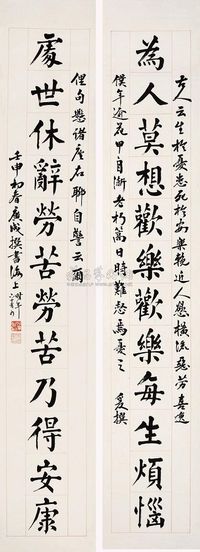 古人云生於憂患死於安樂輓近人慾橫流惡勞喜逸
為人莫想歡樂歡樂每生煩惱
僕年逾花甲自漸老朽蒿日時難愁焉憂之爰撰
俚句懸諸座右聊自警云爾
處世休辭勞苦勞苦乃得安康
壬申初春廣成撰書海上